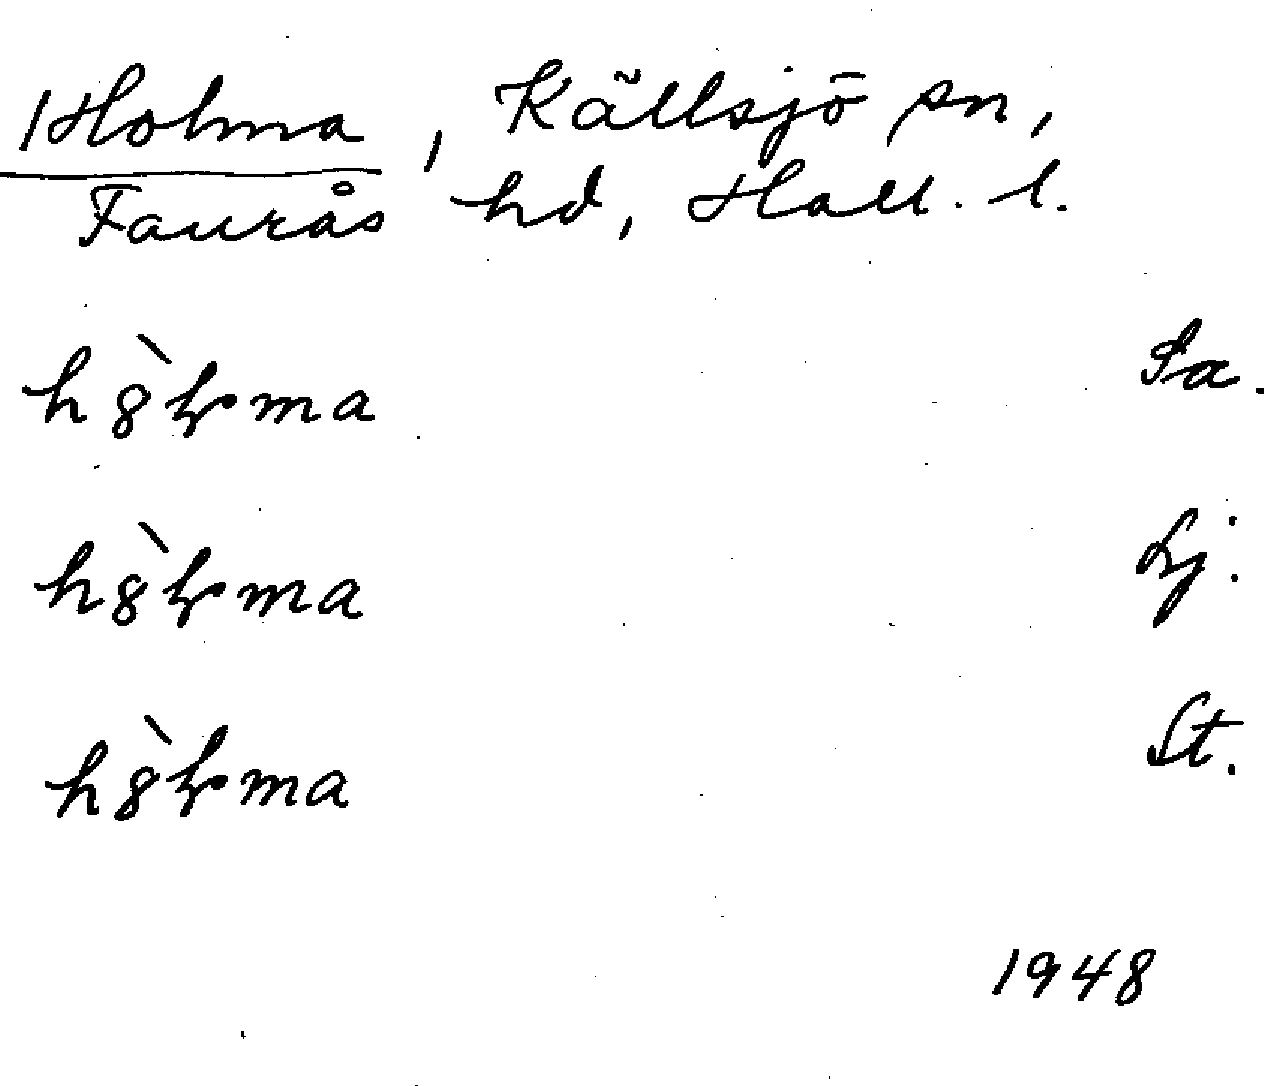 Holma, Källsjö sn,
Faurås hd, Hall. l.
hòlma Sa.
hòlma Lj.
hòlma St.
1948